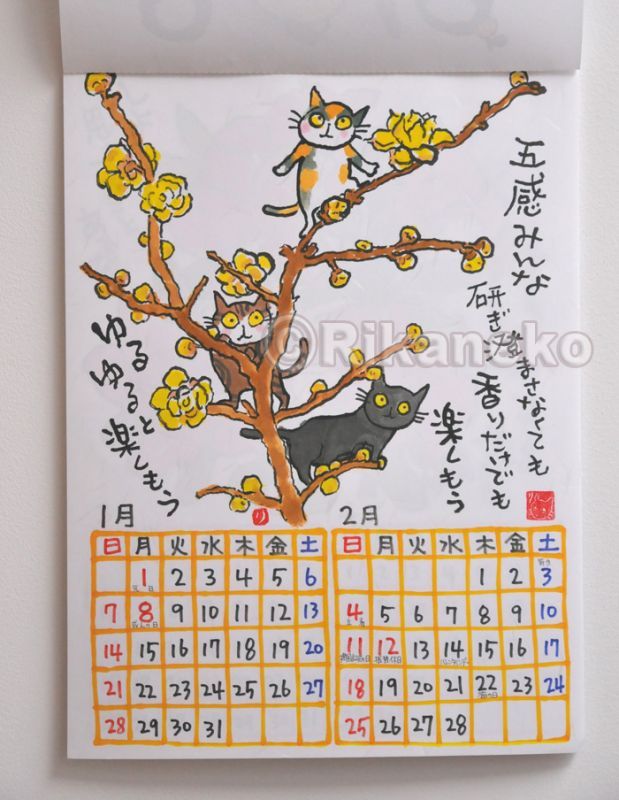 五感みんな
研ぎ澄まさなくても
香りだけでも
楽しもう
ゆるゆると楽しもう
©Rikaneko
り
1月
日 月 火 水 木 金 土
1 2 3 4 5 6
元日
7 8 9 10 11 12 13
成人の日
14 15 16 17 18 19 20
21 22 23 24 25 26 27
28 29 30 31
2月
日 月 火 水 木 金 土
節分
1 2 3
4 5 6 7 8 9 10
立春
11 12 13 14 15 16 17
建国記念の日 振替休日 バレンタインデー
18 19 20 21 22 23 24
猫の日
25 26 27 28